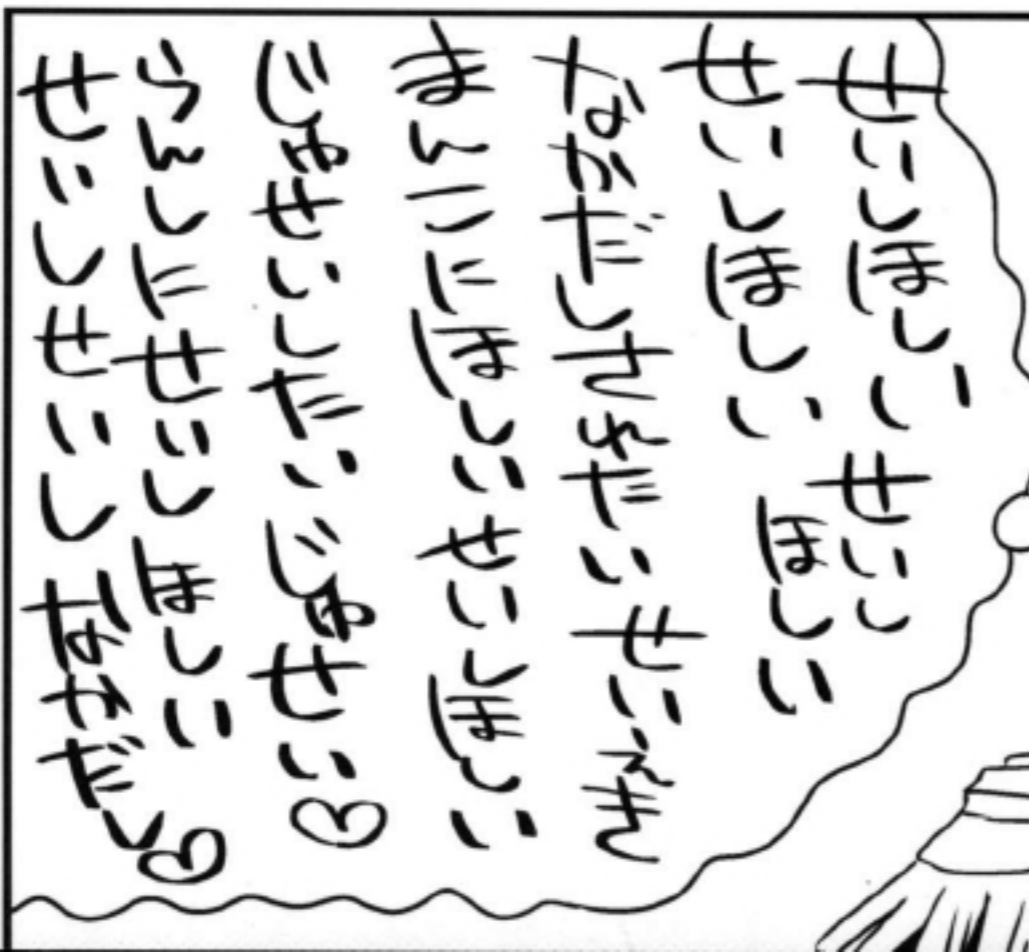 せいしほしい せいし
せいしほしい ほしい
なかだしされたい せいえき
まんこにほしいせいしほしい
じゅせいしたい じゅせい♡
らんしにせいしほしい
せいしせいしなかだし♡